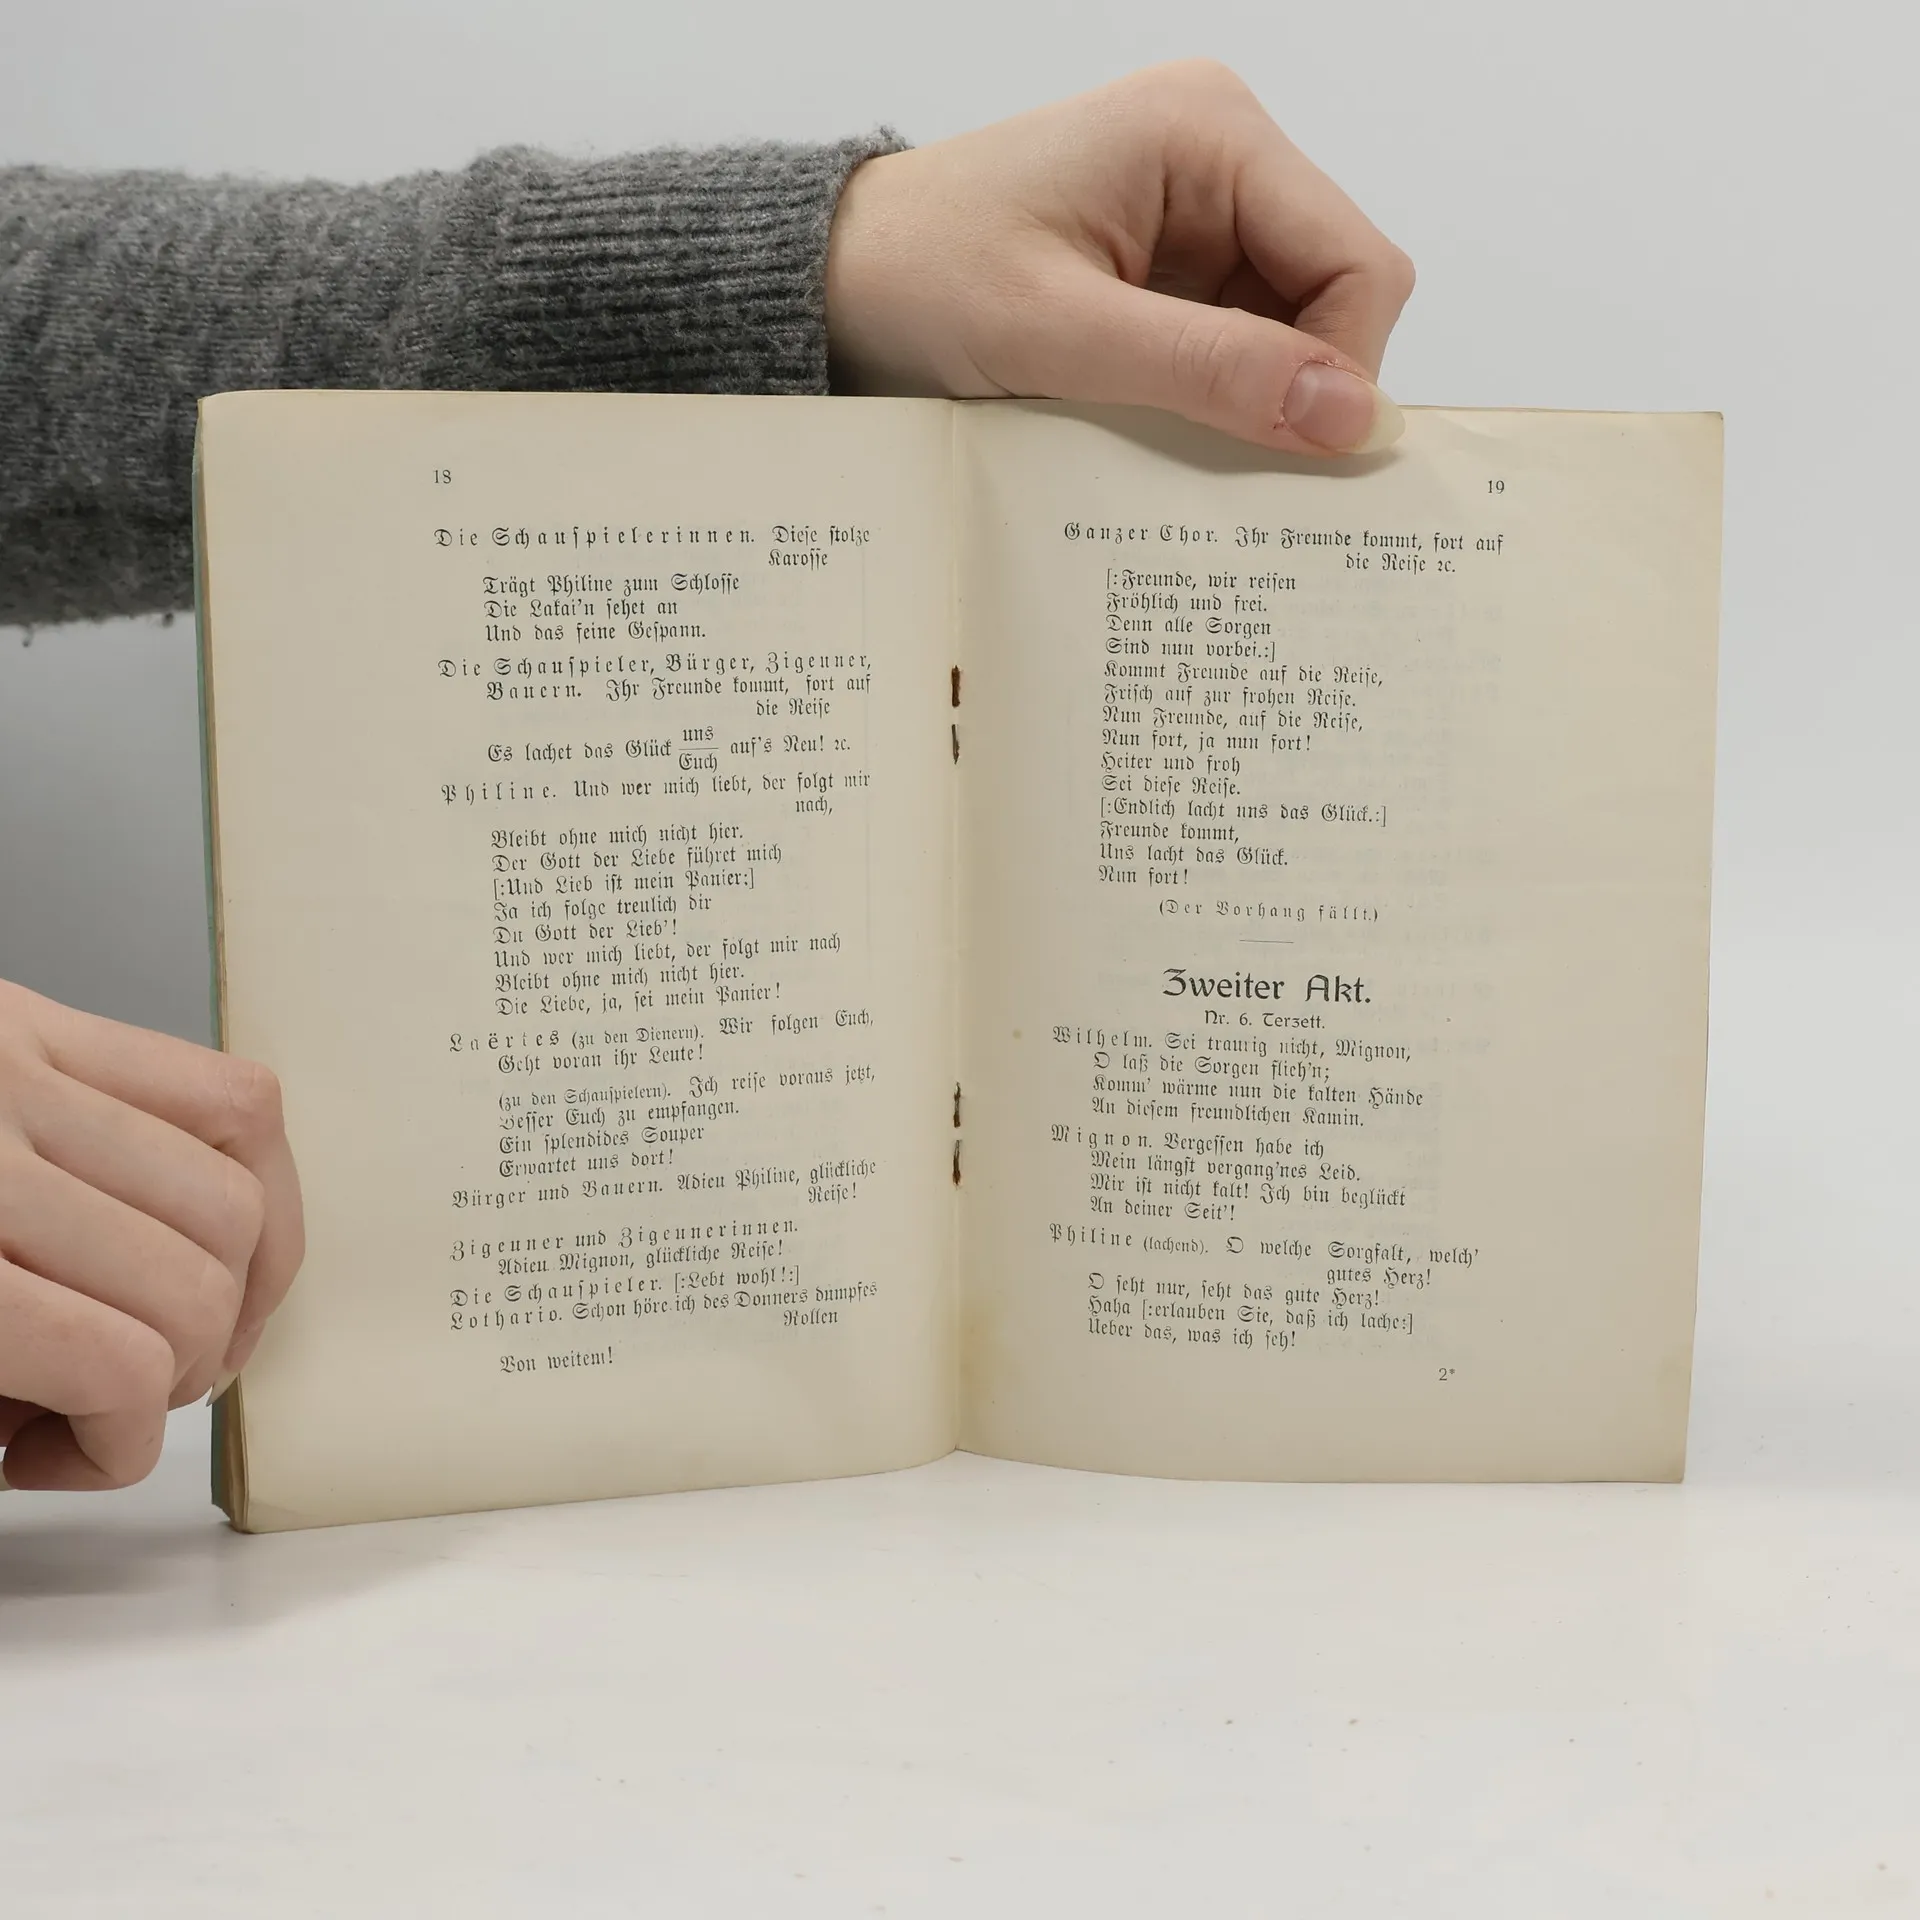 18
Die Schauſpielerinnen. Dieſe ſtolze
Karoſſe
Trägt Philine zum Schloſſe
Die Lakai'n ſehet an
Und das feine Geſpann.
Die Schauſpieler, Bürger, Zigeuner,
Bauern. Ihr Freunde kommt, fort auf
die Reiſe
uns
Es lachet das Glück auf's Neu! ꝛc.
Euch
Philine. Und wer mich liebt, der folgt mir
nach,
Bleibt ohne mich nicht hier.
Der Gott der Liebe führet mich
[:Und Lieb iſt mein Panier:]
Ja ich folge treulich dir
Du Gott der Lieb'!
Und wer mich liebt, der folgt mir nach
Bleibt ohne mich nicht hier.
Die Liebe, ja, ſei mein Panier!
Laërtes (zu den Dienern). Wir folgen Euch,
Geht voran ihr Leute!
(zu den Schauſpielern). Ich reiſe voraus jetzt,
Beſſer Euch zu empfangen.
Ein ſplendides Souper
Erwartet uns dort!
Bürger und Bauern. Adieu Philine, glückliche
Reiſe!
Zigeuner und Zigeunerinnen.
Adieu Mignon, glückliche Reiſe!
Die Schauſpieler. [:Lebt wohl!:]
Lothario. Schon höre ich des Donners dumpfes
Rollen
Von weitem!
19
Ganzer Chor. Ihr Freunde kommt, fort auf
die Reiſe ꝛc.
[:Freunde, wir reiſen
Fröhlich und frei.
Denn alle Sorgen
Sind nun vorbei.:]
Kommt Freunde auf die Reiſe,
Friſch auf zur frohen Reiſe.
Nun Freunde, auf die Reiſe,
Nun fort, ja nun fort!
Heiter und froh
Sei dieſe Reiſe.
[:Endlich lacht uns das Glück.:]
Freunde kommt,
Uns lacht das Glück.
Nun fort!
(Der Vorhang fällt.)
Zweiter Akt.
Nr. 6. Terzett.
Wilhelm. Sei traurig nicht, Mignon,
O laß die Sorgen flieh'n;
Komm' wärme nun die kalten Hände
An dieſem freundlichen Kamin.
Mignon. Vergeſſen habe ich
Mein längſt vergang'nes Leid.
Mir iſt nicht kalt! Ich bin beglückt
An deiner Seit'!
Philine (lachend). O welche Sorgfalt, welch'
gutes Herz!
O ſeht nur, ſeht das gute Herz!
Haha [:erlauben Sie, daß ich lache:]
Ueber das, was ich ſeh!
2*